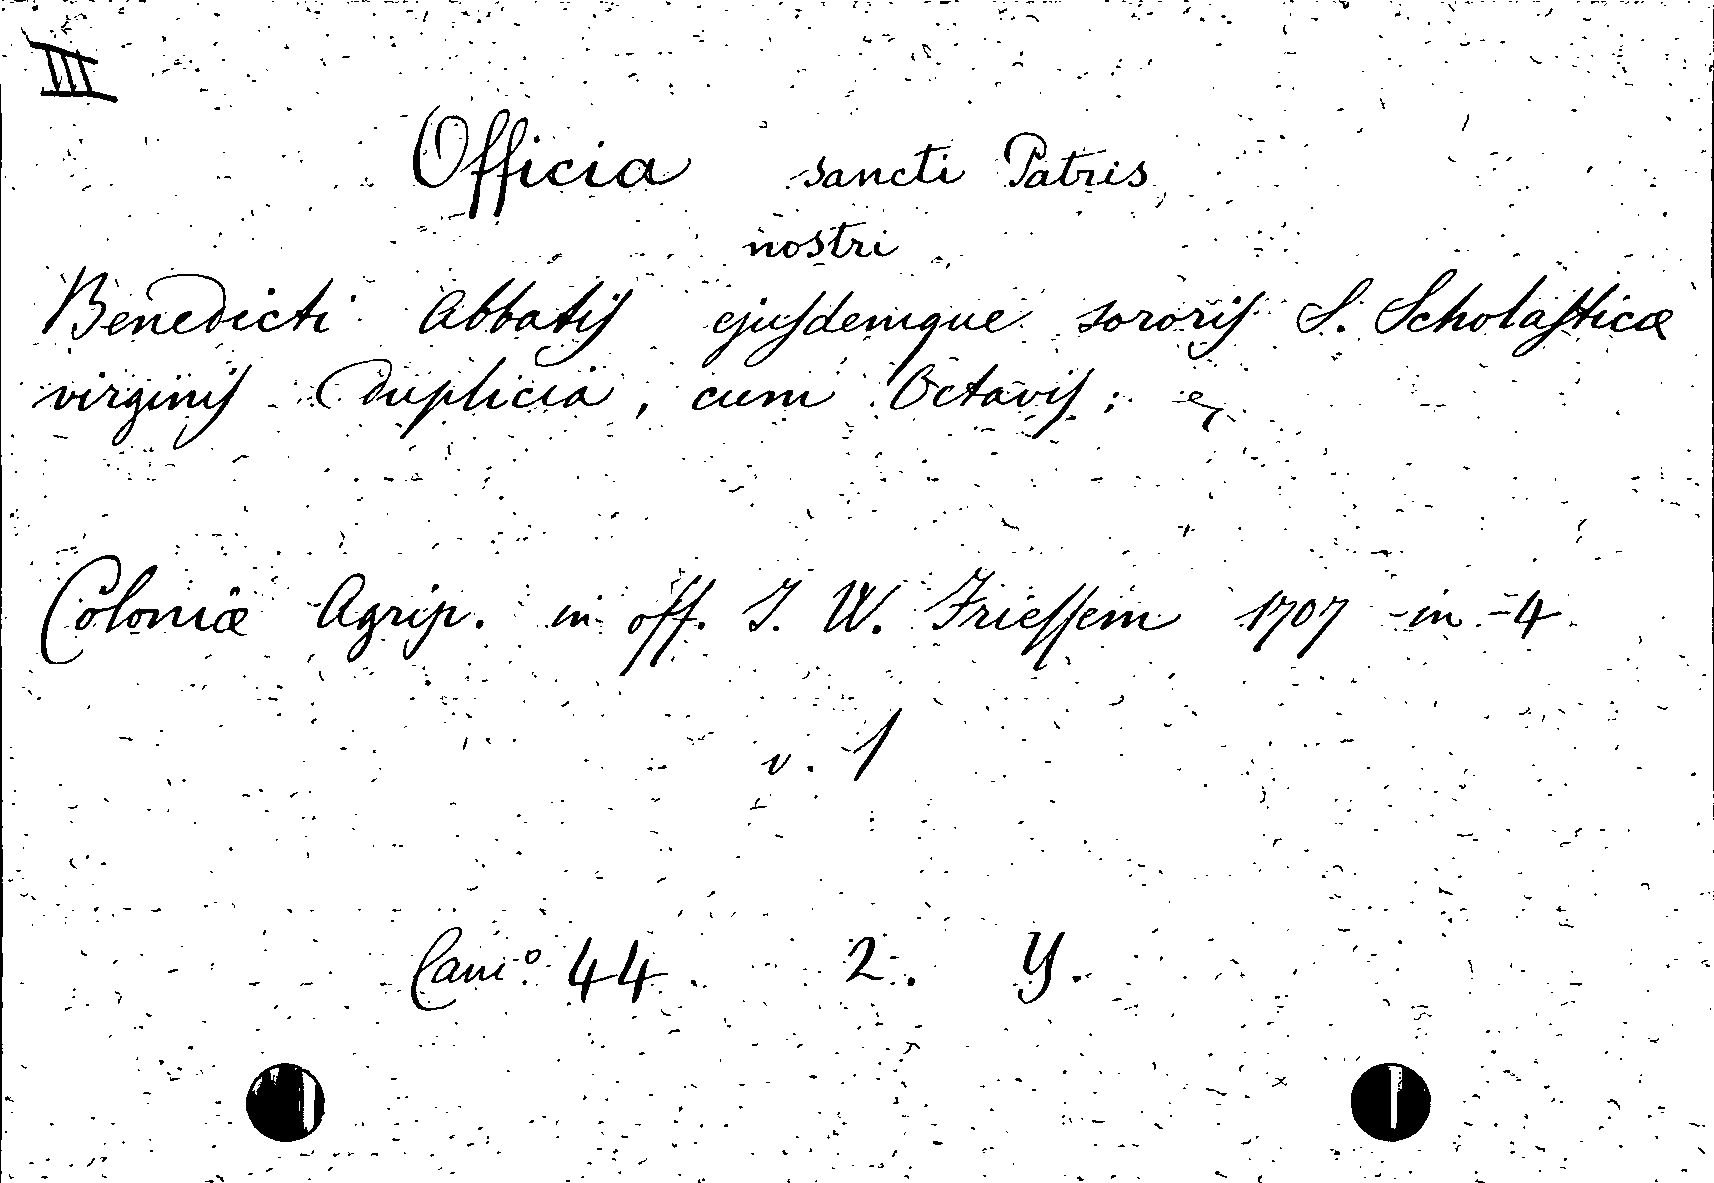 III
Officia sancti Patris
nostri
Benedicti Abbatis ejusdemque sororis S. Scholasticæ
virginis Duplicia, cum Octavis;
Coloniæ Agrip. in off. J. W. Friessem 1707 -in-4
v. 1
Cam° 44. 2. Y.